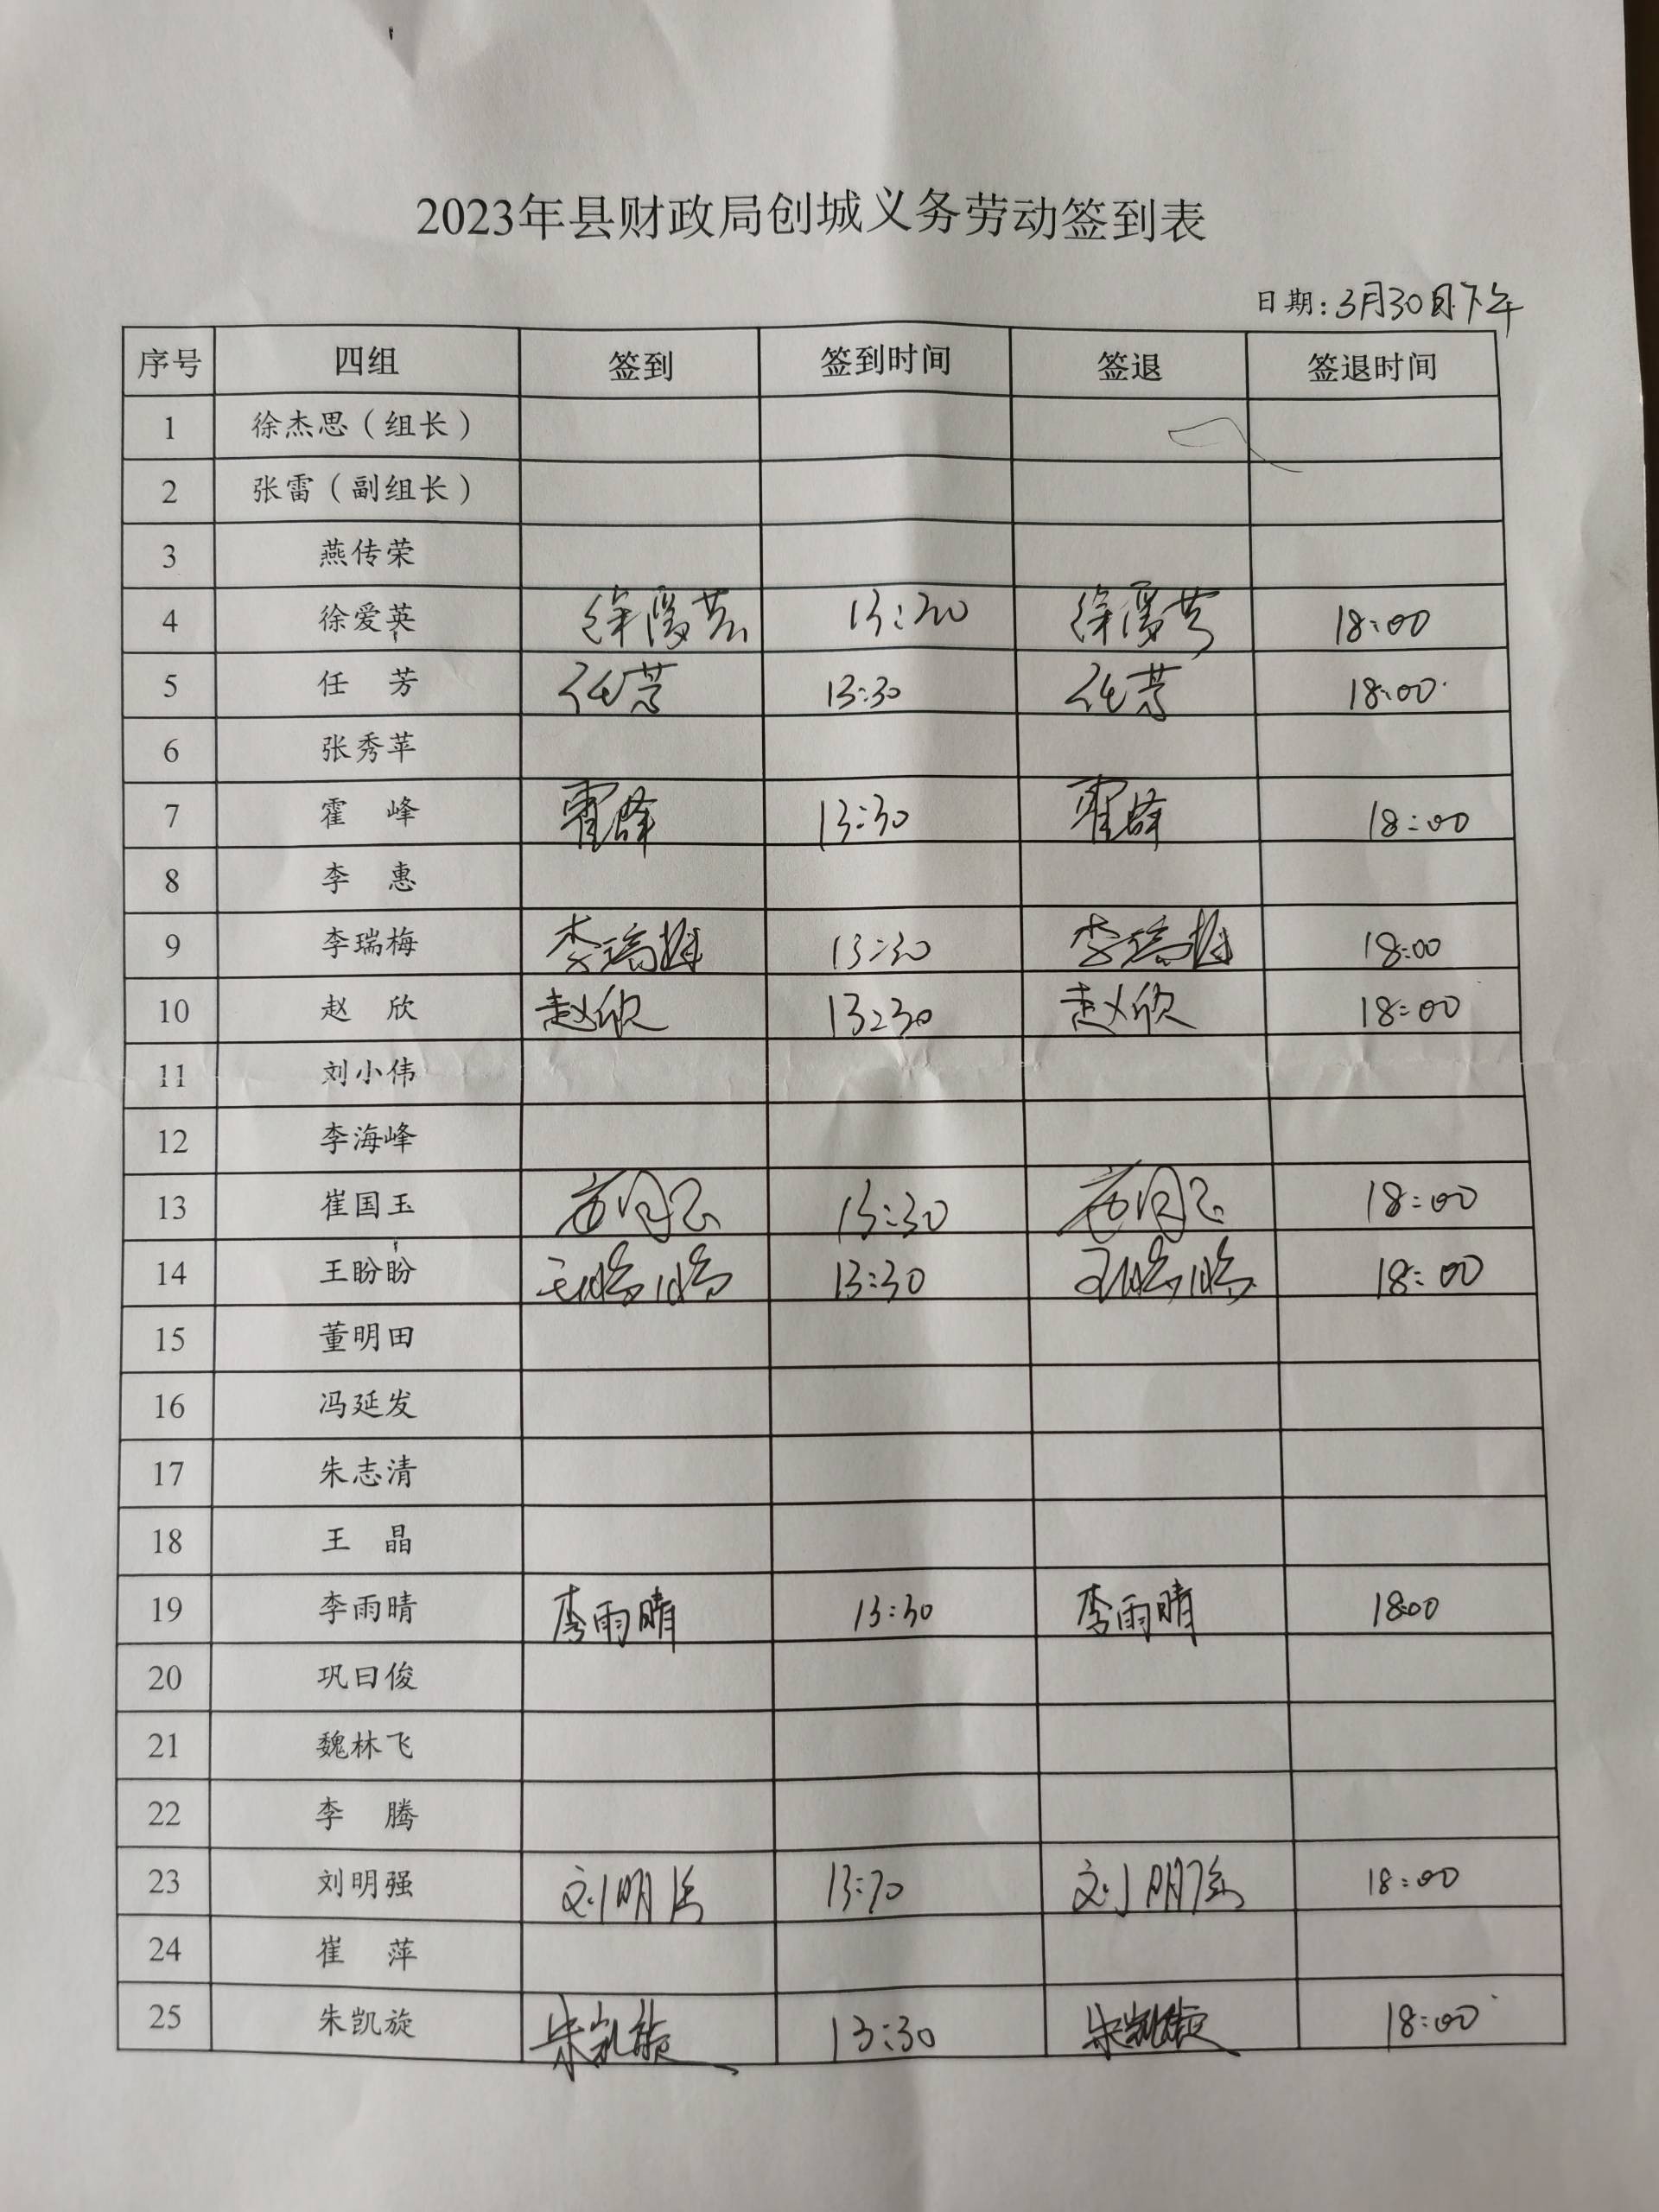 2023年县财政局创城义务劳动签到表
日期:3月30日下午
序号 四组 签到 签到时间 签退 签退时间
1 徐杰思（组长）
2 张雷（副组长）
3 燕传荣
4 徐爱英 徐爱英 13:30 徐爱英 18:00
5 任 芳 任芳 13:30 任芳 18:00
6 张秀苹
7 霍 峰 霍峰 13:30 霍峰 18:00
8 李 惠
9 李瑞梅 李瑞梅 13:30 李瑞梅 18:00
10 赵 欣 赵欣 13:30 赵欣 18:00
11 刘小伟
12 李海峰
13 崔国玉 崔国玉 13:30 崔国玉 18:00
14 王盼盼 王盼盼 13:30 王盼盼 18:00
15 董明田
16 冯延发
17 朱志清
18 王 晶
19 李雨晴 李雨晴 13:30 李雨晴 18:00
20 巩曰俊
21 魏林飞
22 李 腾
23 刘明强 刘明强 13:30 刘明强 18:00
24 崔 萍
25 朱凯旋 朱凯旋 13:30 朱凯旋 18:00